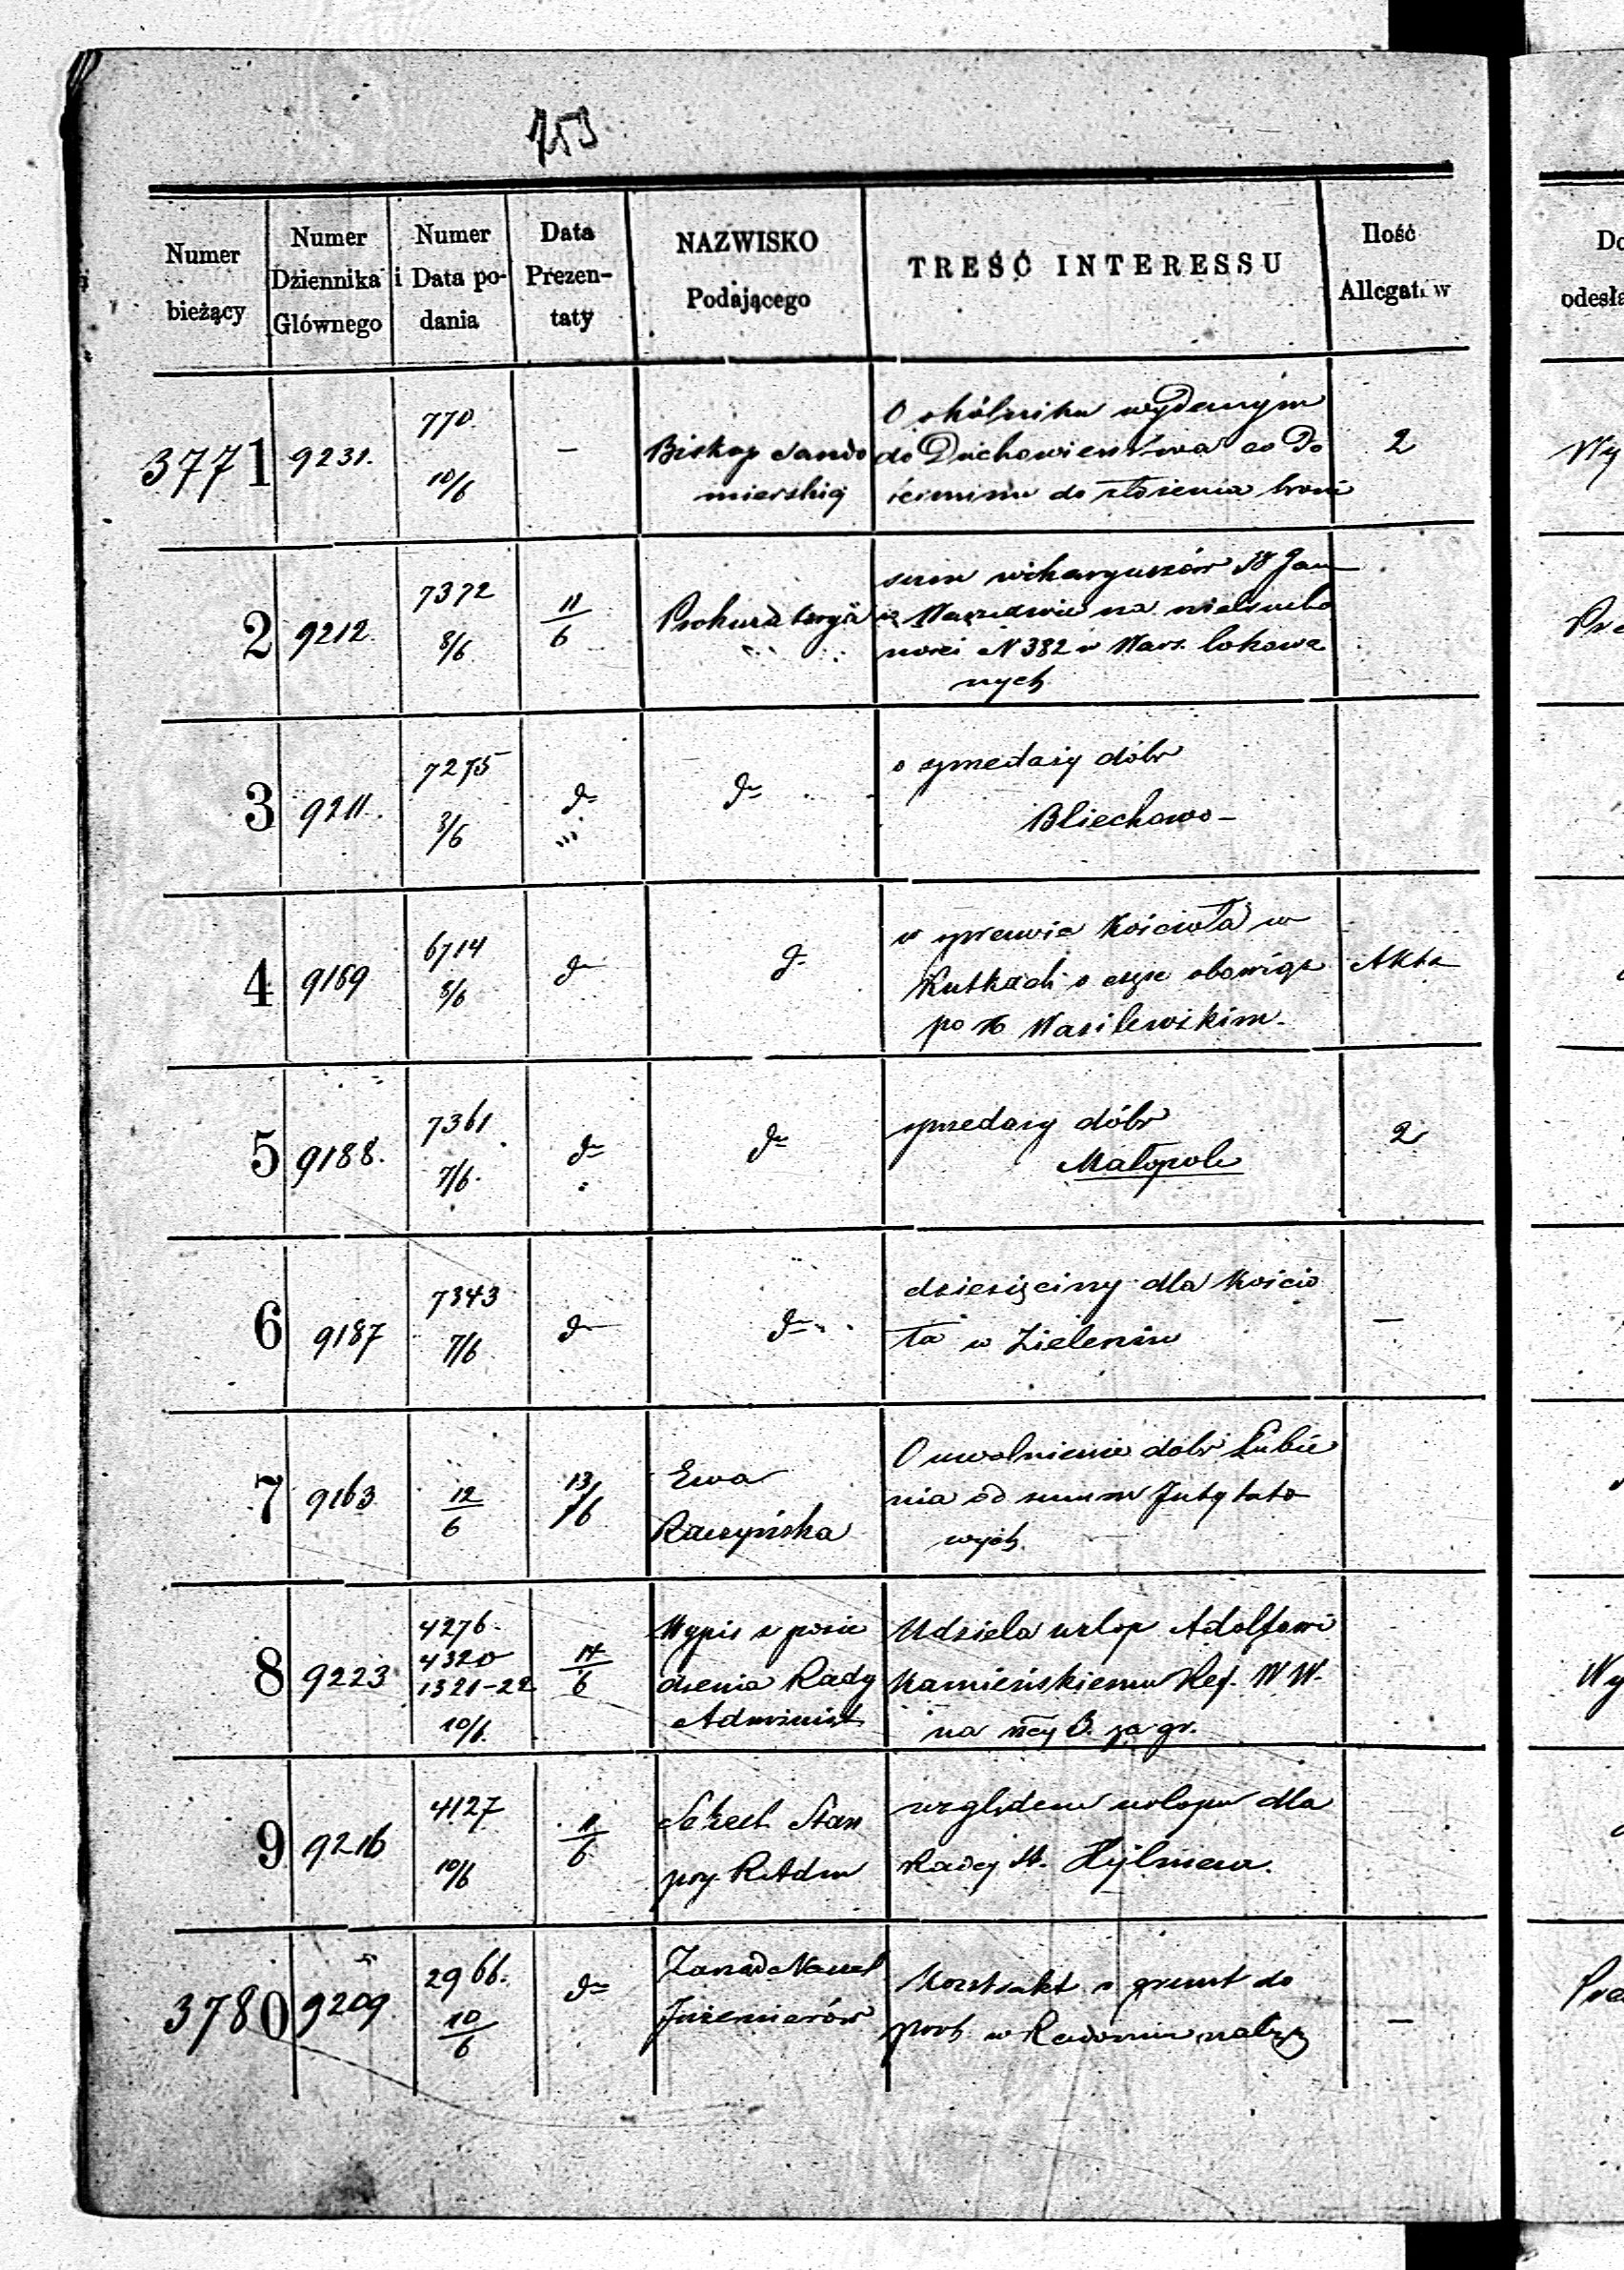 753
Numer bieżący
Numer Dziennika Głównego
Numer i Data podania
Data Prezentaty
NAZWISKO Podającego
TREŚĆ INTERESSU
Ilość Allegatów
3771 9231. 770. 10/6 –
Biskup Sando
mierskiej
O okólniku wydanym
do Duchowieństwa co do
do złożenia broni
2
2 9212. 7372 8/6 11/6
Prokuratorya
sum wikaryuszów Sś Jan
w Warszawie na nierucho
mości N 382 w Wars. lokowa
nych
3 9211. 7275 3/6 dto
dto
o sprzedaży dóbr
Bliechowo –
4 9189 6714 8/6 dto
dto
w sprawie Kościoła w
Kutkach o obowiąz
po Wasilewskim.
Akta
5 9188. 7361 7/6. dto
dto
sprzedaży dóbr
Małopole
2
6 9187 7343 7/6 dto
dto
dziesięciny dla Kościo
ła w Zieleniu
–
7 9163 12/6 13/6
Ewa
Raczyńska
O uwolnienie dóbr Łubie
nia od summ Jnstytuto
wych.
8 9223 4276. 4320 1321-22 10/6. 14/6
Wypis z posie
dzenia Rady
Administ
Udziela urlop Adolfowi
Kamieńskiemu Ref. W W.
na mcy 3. za gr.
9 9216 4127 10/6 11/6
Sekret. Stan
przy R Adm
względem urlopu dla
Radcy St. Hylnera.
3780 9209 2966. 10/6 dto
Zarząd Naczel
Jnżenierów
Kontrakt o grunt do
prob. w Radomiu należ
–
Do
odesła
Wy
Pro
Wy
Pro